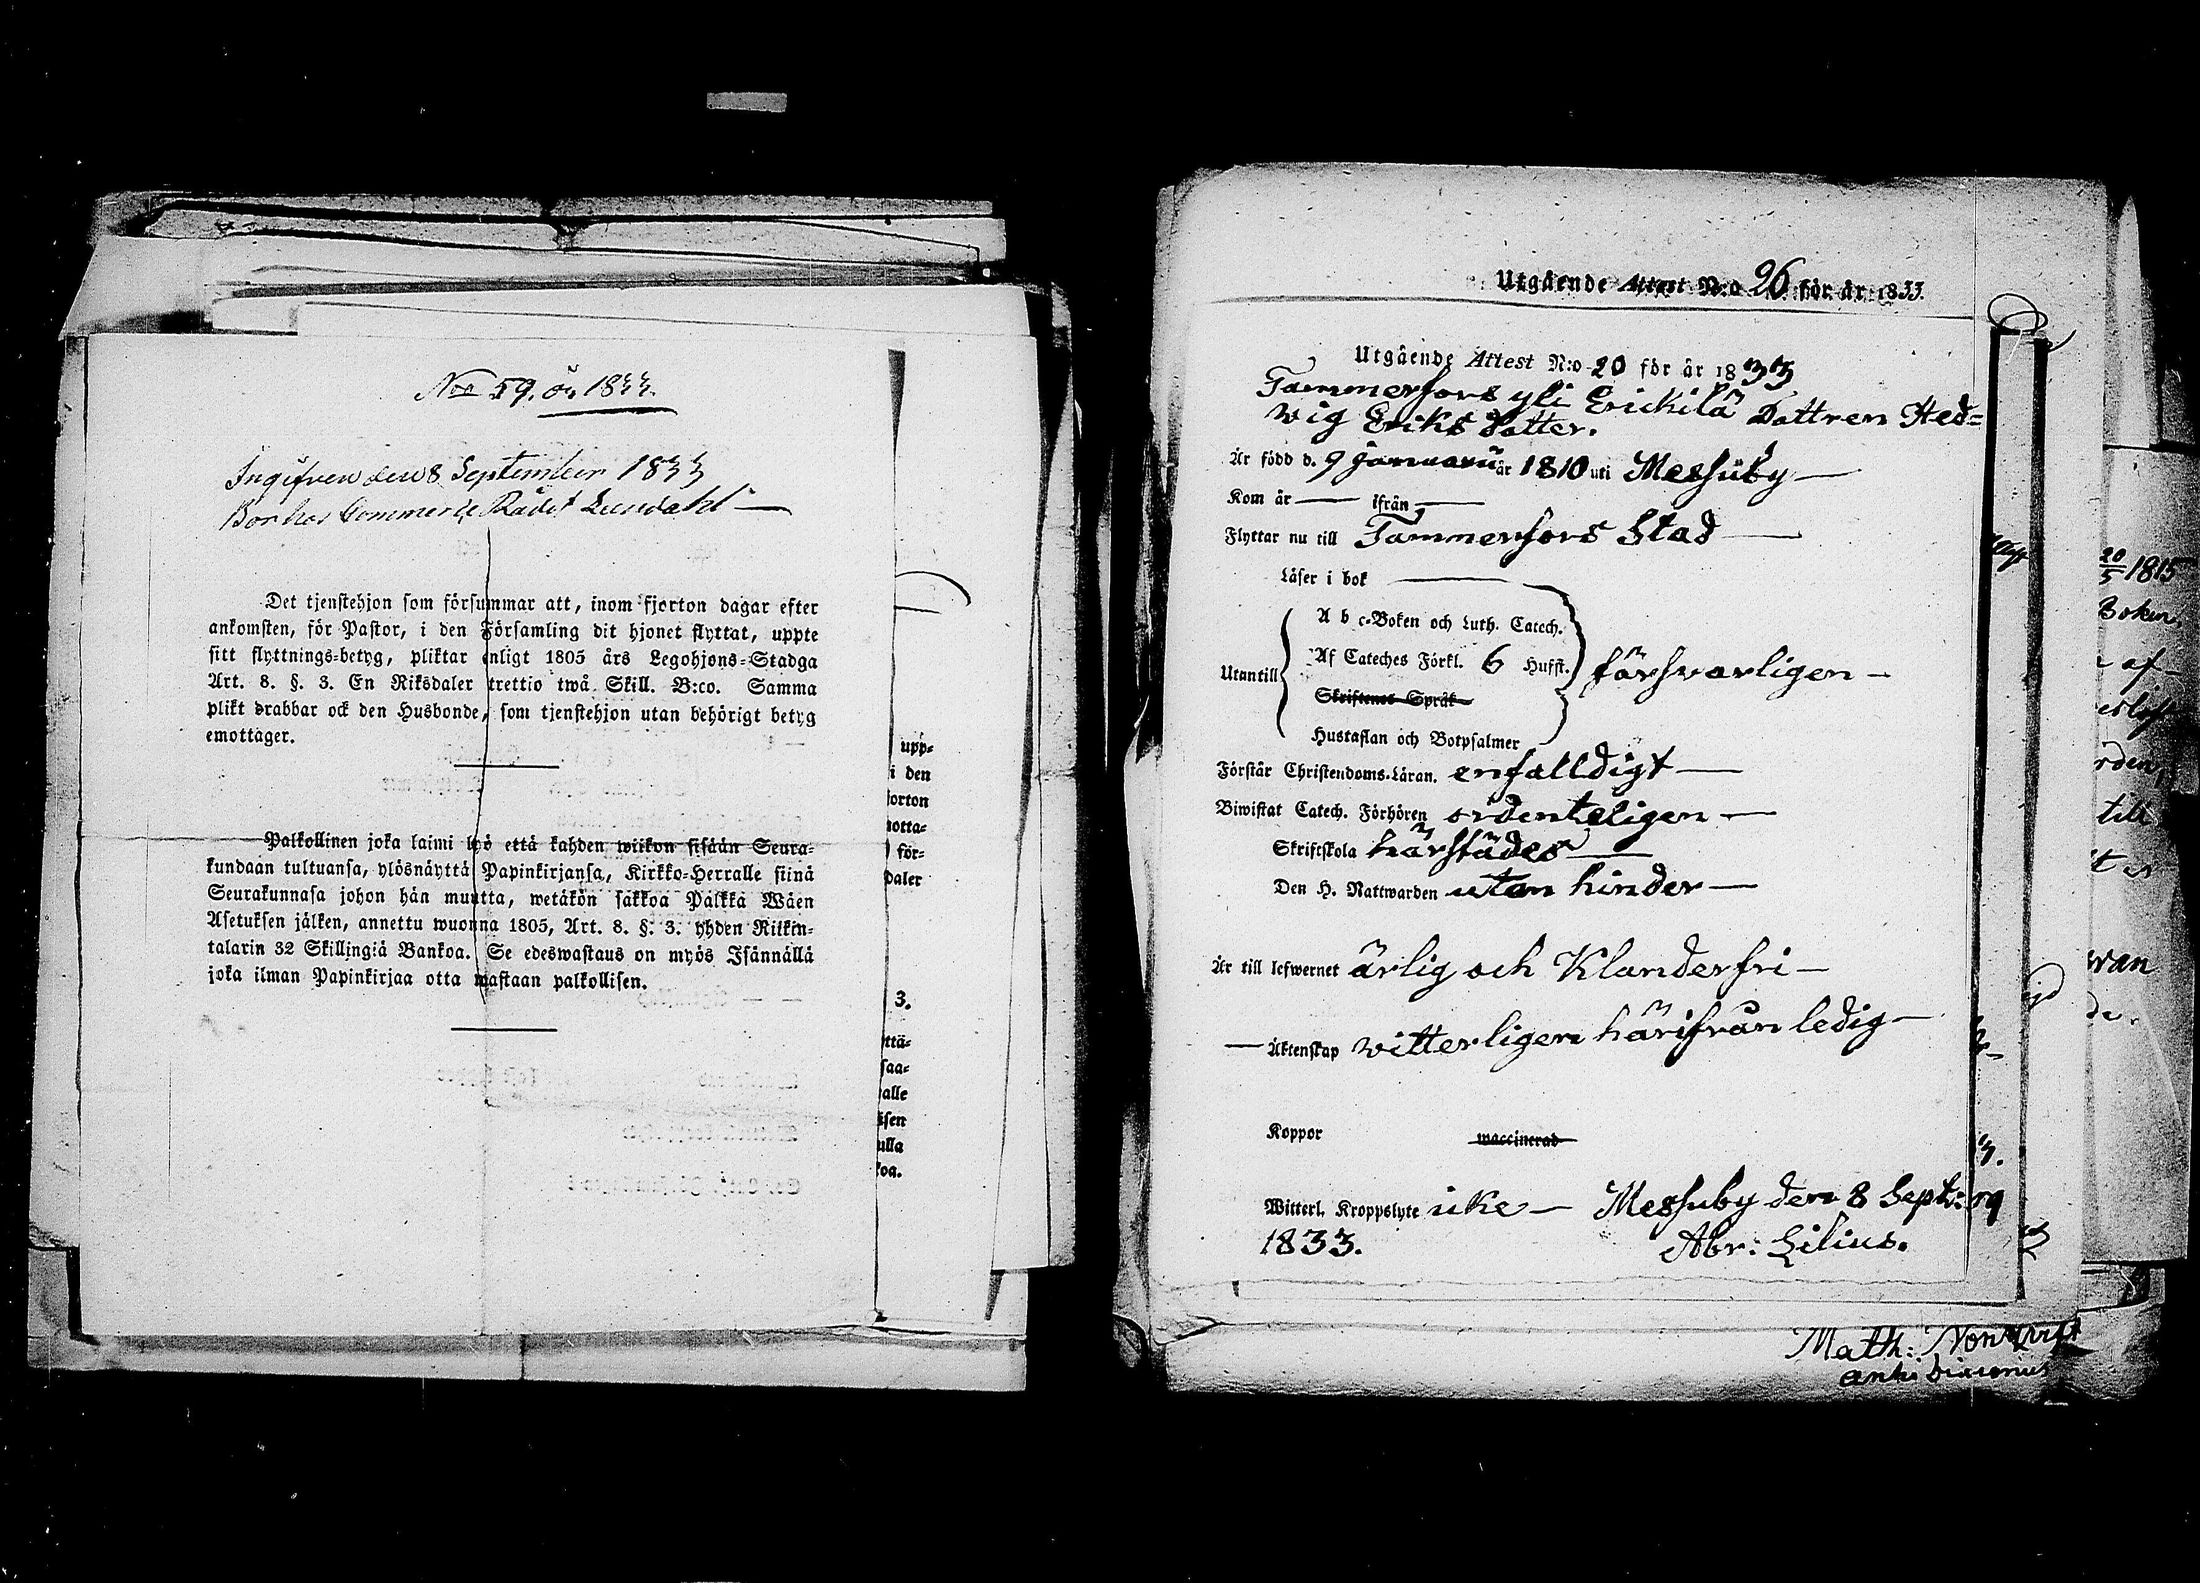 No 59. år 1833.
Ingifven den 8 September 1833
Bor hos Commerce Rådet Lundahl —
Det tjenstehjon som försummar att, inom fjorton dagar efter
ankomsten, för Pastor, i den Församling dit hjonet flyttat, uppte
sitt flyttnings-betyg, pliktar enligt 1805 års Legohjons-Stadga
Art. 8. §. 3. En Riksdaler trettio twå Skill. B:co. Samma
plikt drabbar ock den Husbonde, som tjenstehjon utan behörigt betyg
emottager.
Palkollinen joka laimi lyö että kahden wiikon sisään Seura-
kundaan tultuansa, ylösnäyttä Papinkirjansa, Kirkko-Herralle siinä
Seurakunnasa johon hän muutta, wetäkön sakkoa Palkka Wäen
Asetuksen jälken, annettu wuonna 1805, Art. 8. §. 3. yhden Riikin-
talarin 32 Skillingiä Bankoa. Se edeswastaus on myös Isännällä
joka ilman Papinkirjaa otta wastaan palkollisen.
upp-
i den
orton
otta-
för-
daler
3.
ttä-
saa-
alle
isen
ulla
koa.
Utgående Attest N:o 26 för år 1833.
Utgående Attest N:o 20 för år 1833
Tammerfors yli Erickilä Dottren Hed-
wig Eriks Dotter.
Är född d. 9 Januarii år 1810 uti Messuby —
Kom år — ifrån —
Flyttar nu till Tammerfors Stad —
Läser i bok —
A b c-Boken och Luth. Catech.
Af Cateches Förkl. 6 Hufst.
Utantill försvarligen —
Skriftenes Språk
Hustaflan och Botpsalmer
Förstår Christendoms-Läran. enfalldigt —
Biwistat Catech. Förhören ordenteligen —
Skriftskola härstädes —
Den H. Nattwarden utan hinder —
Är till lefwernet ärlig och Klanderfri —
— Äktenskap witterligen härifrån ledig —
Koppor waccinerad
Witterl. Kroppslyte icke — Messuby den 8 Sept:
1833. Abr: Lilius.
Math:
20/5 1815
Boken
af
rden,
till